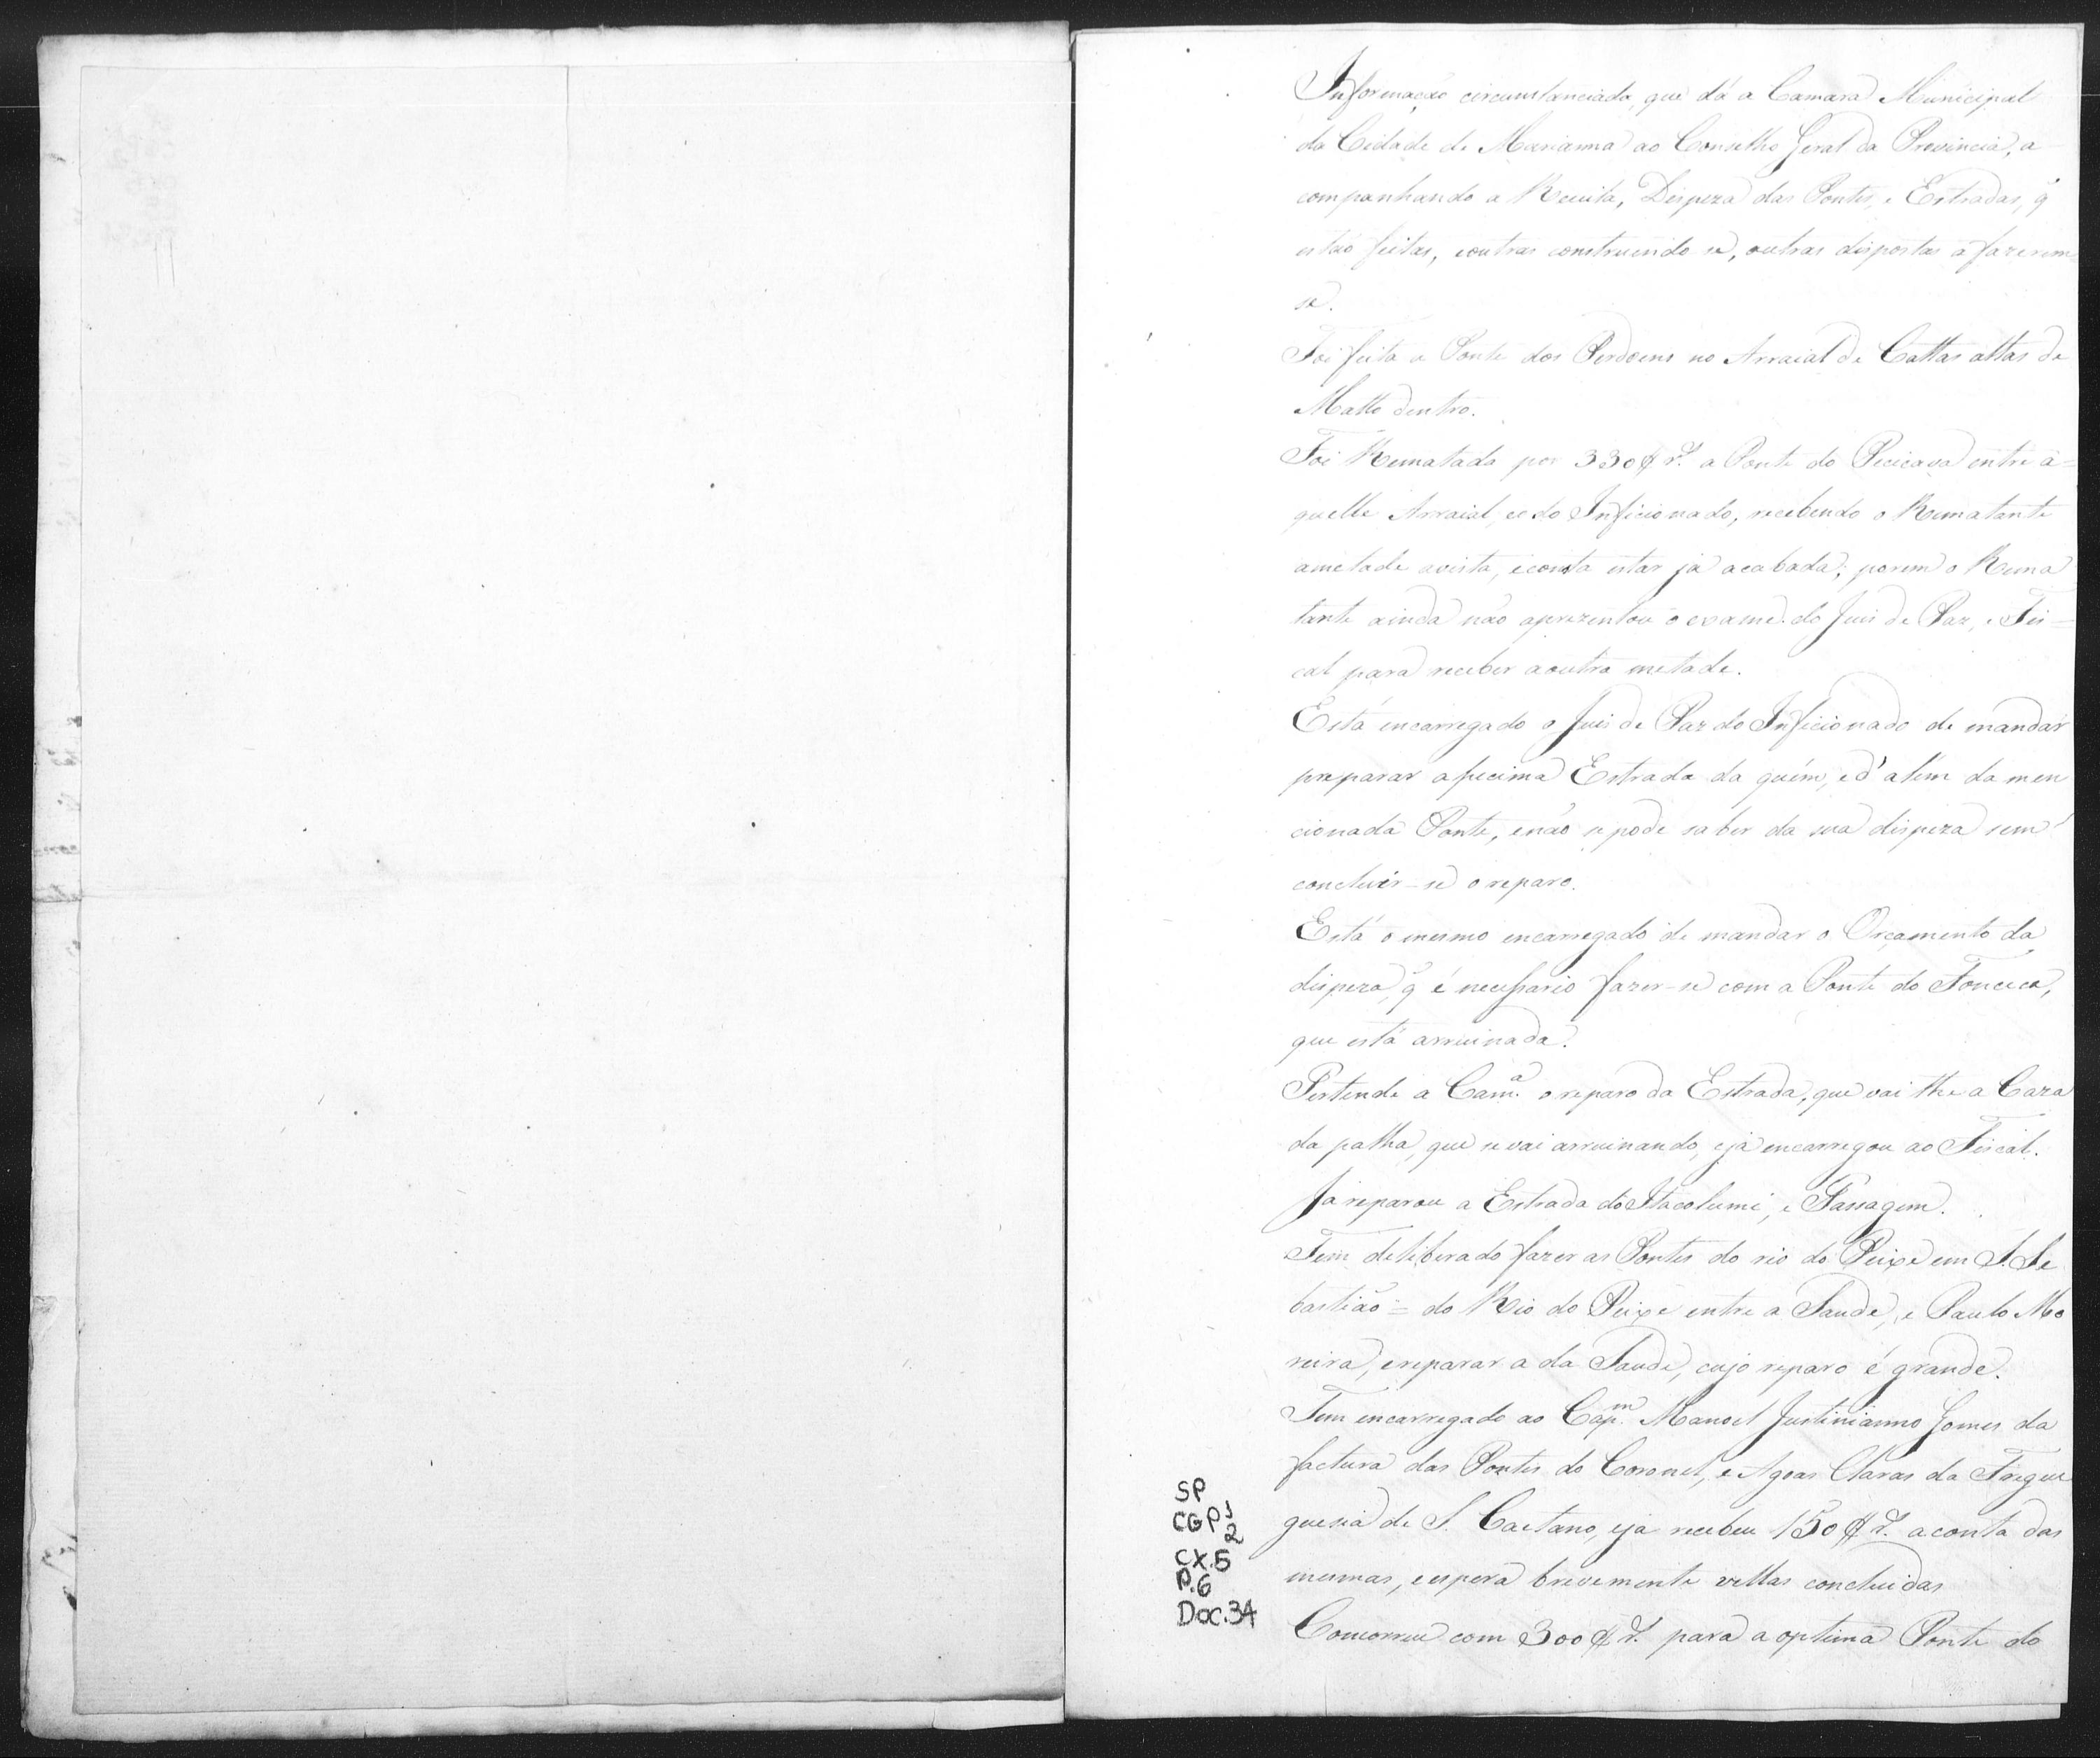 Informação circunstanciada, que dá a Camara Municipal
da Cidade de Marianna ao Conselho Geral da Provincia, a
companhando a Receita, Despeza das Pontes, e Estradas, q̃
estão feitas, e outras construindo se, outras dispostas a fazerem
se.
Foi feita a Ponte dos Perdoens no Arraial de Cattas altas de
Matto dentro.
Foi Rematada por 330$ r.s a Ponte do Pecicava entre a=
quelle Arraial, eo do Inficionado, recebendo o Rematante
ametade avista, e consta estar ja acabada; porem o Rema
tante ainda não aprezentou o exame do Juis de Paz, e Fis=
cal para receber aoutra metade.
Está encarregado o Juis de Paz do Inficionado de mandar
preparar a pecima Estrada da quém, e d'alem da men
cionada Ponte, enão se pode saber da sua dispeza sem
concluir-se o reparo.
Está o mesmo encarregado de mandar o Orçamento da
dispeza, q̃ é necessario fazer-se com a Ponte do Fonceca,
que está arruinada.
Pertende a Cam.a o reparo da Estrada, que vai the a Caza
da palha, que se vai arruinando, eja encarregou ao Fiscal.
Ja reparou a Estrada do Itacolumi, e Passagem.
Tem deliberado fazer as Pontes do rio do Peixe em S. Se
bastião = do Rio do Peixe entre a Saude, e Paulo Mo
reira, ereparar a da Saude, cujo reparo é grande.
Tem encarregado ao Cap.m Manoel Justinianno Gomes da
factura das Pontes do Coronel, e Agoas Claras da Fregue
guesia de S. Caetano, eja recebeu 150$ r.s aconta das
mesmas, e espera brevemente vellas concluidas
Concorreu com 300$ r.s para a optima Ponte do
SP
CGP1
2
CX.5
P.6
Doc.34